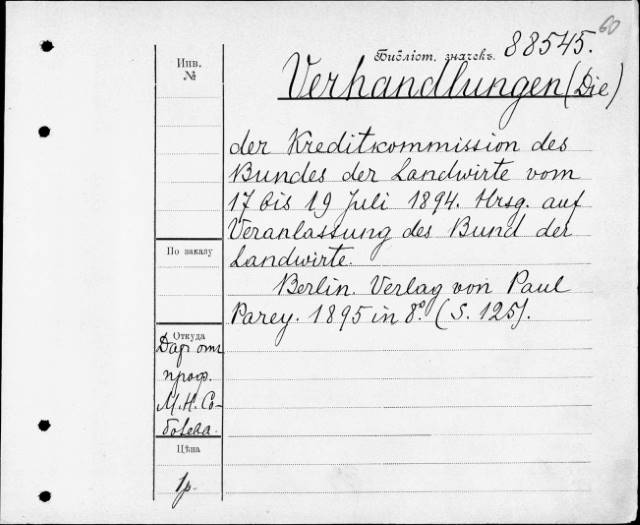 60
Библіот. значекъ. 88545.
Verhandlungen (Die)
der Kreditkommission des
Bundes der Landwirte vom
17 bis 19 Juli 1894. Hrsg. auf
Veranlassung des Bund der
Landwirte.
Berlin. Verlag von Paul
Parey. 1895 in 8.° (S. 125).
Инв.
№
По заказу
Откуда
Дар от
проф.
М.Н. Со-
болева.
Цѣна
1р.